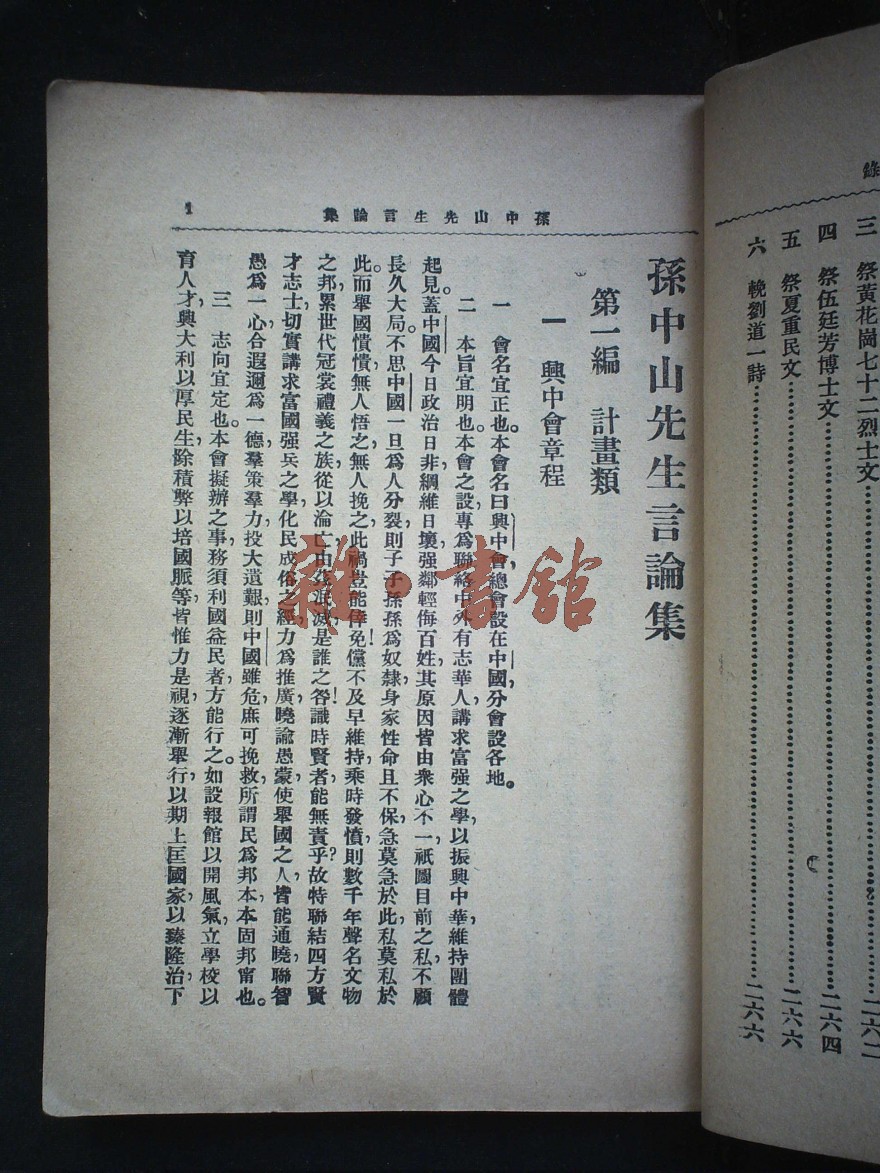 錄
三　祭黃花崗七十二烈士文……二六二
四　祭伍廷芳博士文……二六四
五　祭夏重民文……二六六
六　輓劉道一詩……二六六
孫中山先生言論集
1
孫中山先生言論集
第一編　計畫類
一　興中會章程
一　會名宜正也。本會名曰興中會，總會設在中國，分會設各地。
二　本旨宜明也。本會之設，專爲聯絡中外有志華人，講求富强之學，以振興中華，維持團體
起見。蓋中國今日政治日非，綱維日壞，强鄰輕侮百姓，其原因皆由衆心不一，祇圖目前之私，不顧
長久大局。不思中國一旦爲人分裂，則子子孫孫爲奴隸，身家性命且不保。急莫急於此，私莫私於
此。而舉國憒憒，無人悟之，無人挽之，此禍豈能倖免！儻不及早維持，乘時發憤，則數千年聲名文物
之邦，累世代冠裳禮義之族，從以淪亡，由茲泯滅，是誰之咎！識時賢者，能無責乎？故特聯結四方賢
才志士，切實講求富國强兵之學，化民成俗之經，力爲推廣，曉諭愚蒙，使舉國之人皆能通曉，聯智
愚爲一心，合遐邇爲一德，羣策羣力，投大遺艱，則中國雖危，庶可挽救，所謂民爲邦本，本固邦甯也。
三　志向宜定也。本會擬辦之事，務須利國益民者方能行之。如設報館以開風氣，立學校以
育人才，興大利以厚民生，除積弊以培國脈等，皆惟力是視，逐漸舉行，以期上匡國家，以臻隆治，下
雜·書館